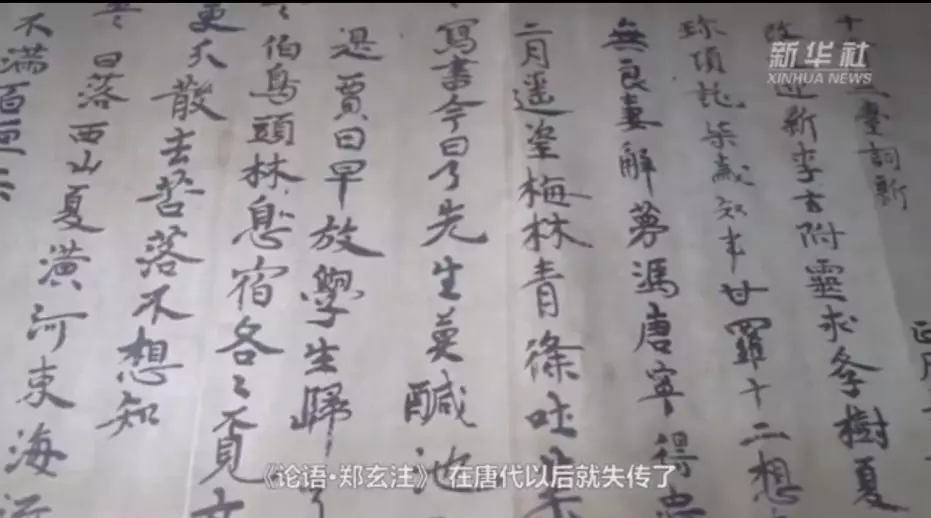 新华社
XINHUA NEWS
三臺詞新
迎新李玄附靈求學樹夏
珎項託柒歲知事甘羅十二想
無良妻解夢馮唐寧得忠
二月遥望梅林青條吐
寫書今日了先生莫醎池
是賈日早放學生歸了
伯鳥頭林息宿各々覓
更天散去苦落不想知
日落西山夏潢河東海流
不滿百恒
《论语·郑玄注》在唐代以后就失传了